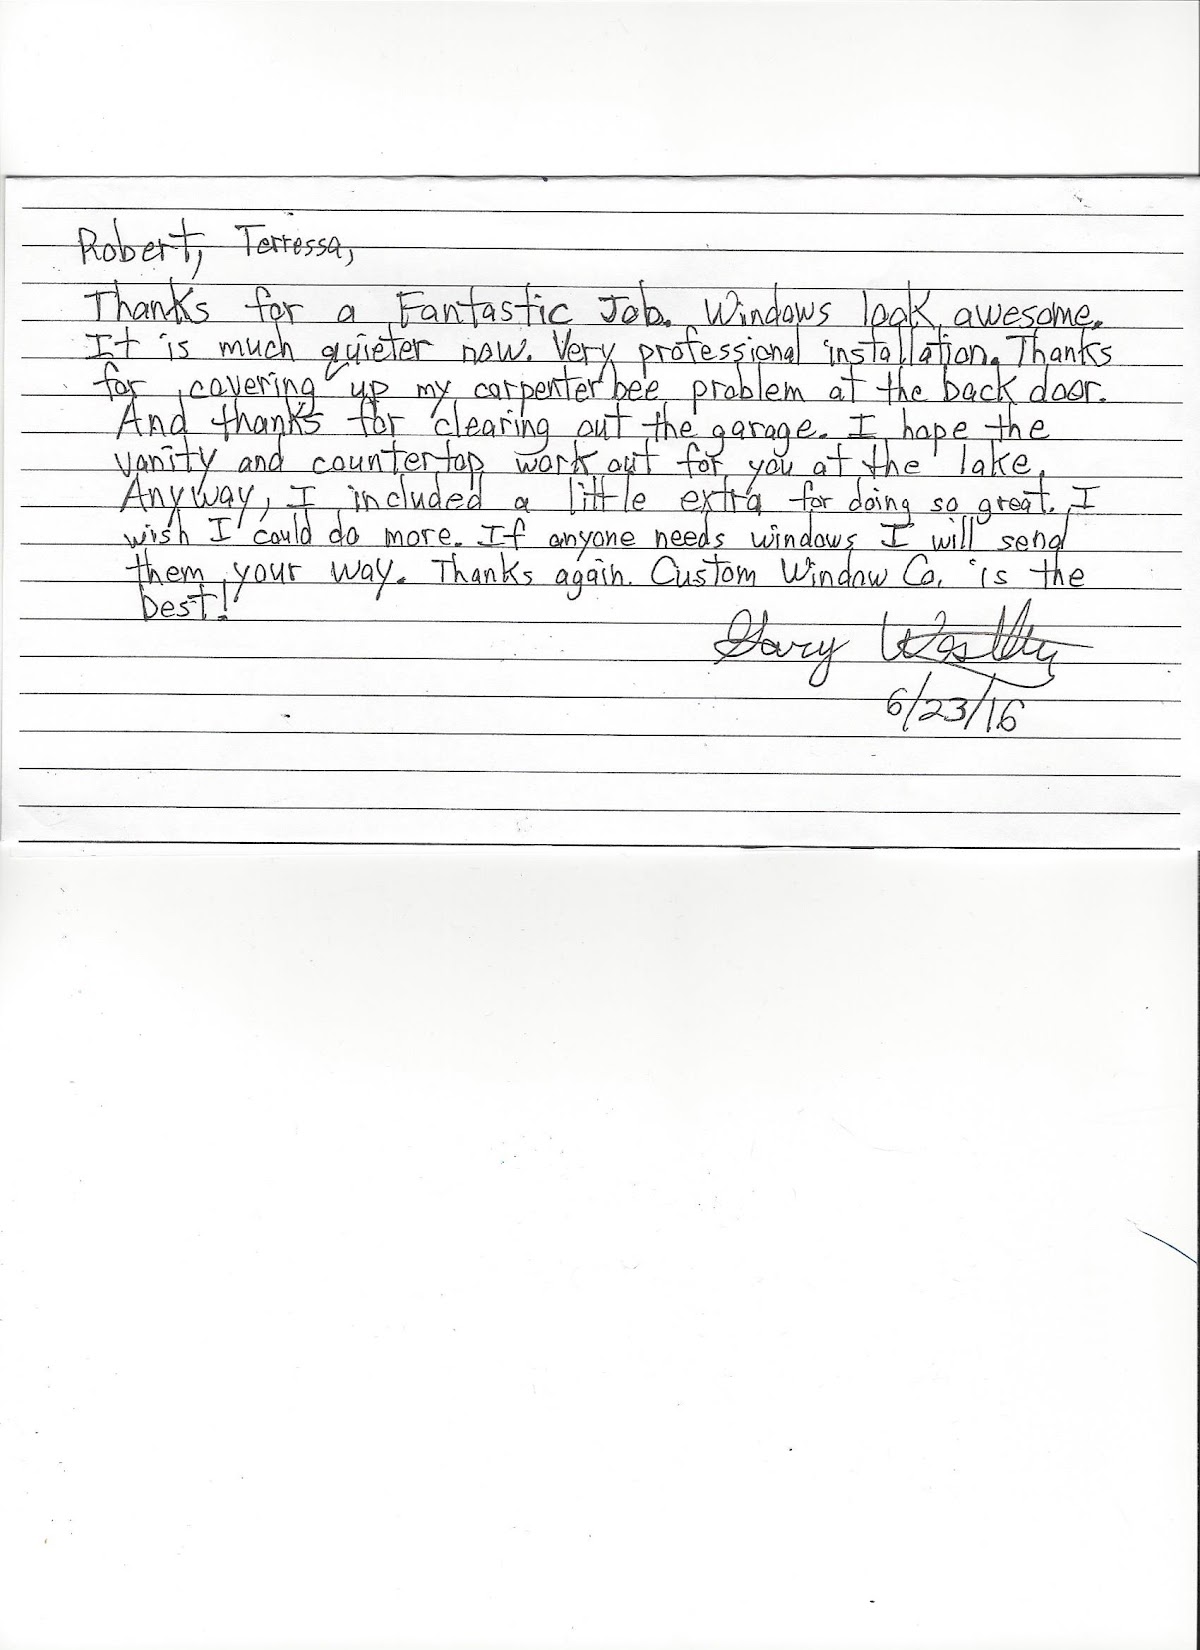 Robert, Terressa,
Thanks for a Fantastic Job. Windows look awesome.
It is much quieter now. Very professional installation. Thanks
for covering up my carpenter bee problem at the back door.
And thanks for clearing out the garage. I hope the
vanity and countertop work out for you at the lake.
Anyway, I included a little extra for doing so great. I
wish I could do more. If anyone needs windows I will send
them your way. Thanks again. Custom Window Co. is the
best!
Gary
6/23/16